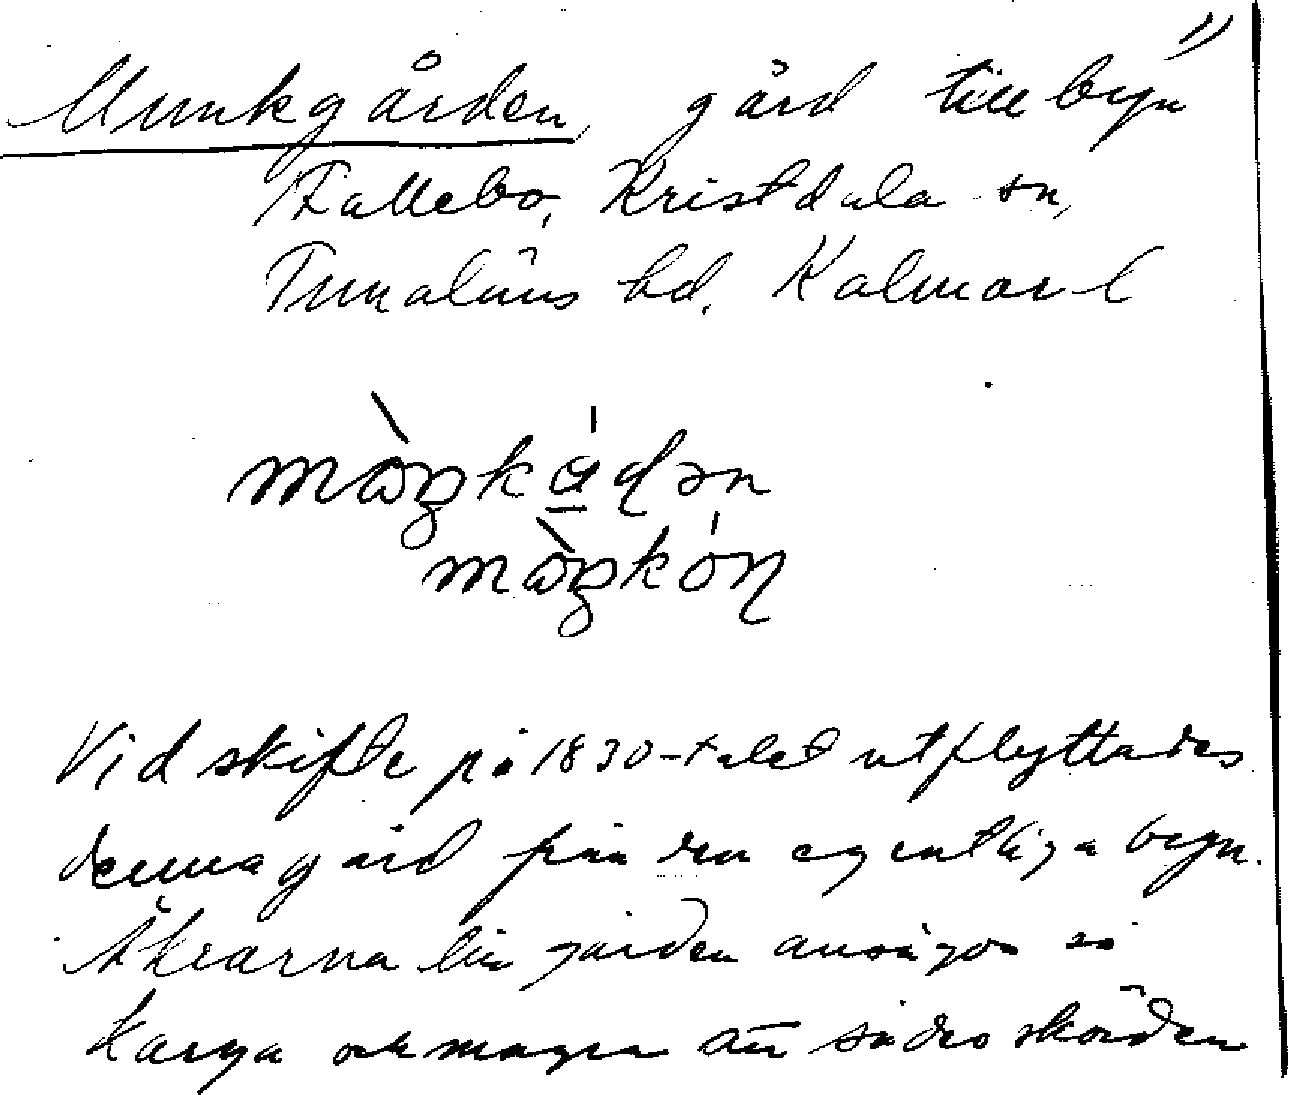 Munkgården, gård till byn
Fallebo, Kristdala sn,
Tunaläns hd. Kalmar l
Vid skifte på 1830-talet utflyttades
denna gård från den egentliga byn.
Åkrarna till gården ansågos så
karga och magra att sädesskörden